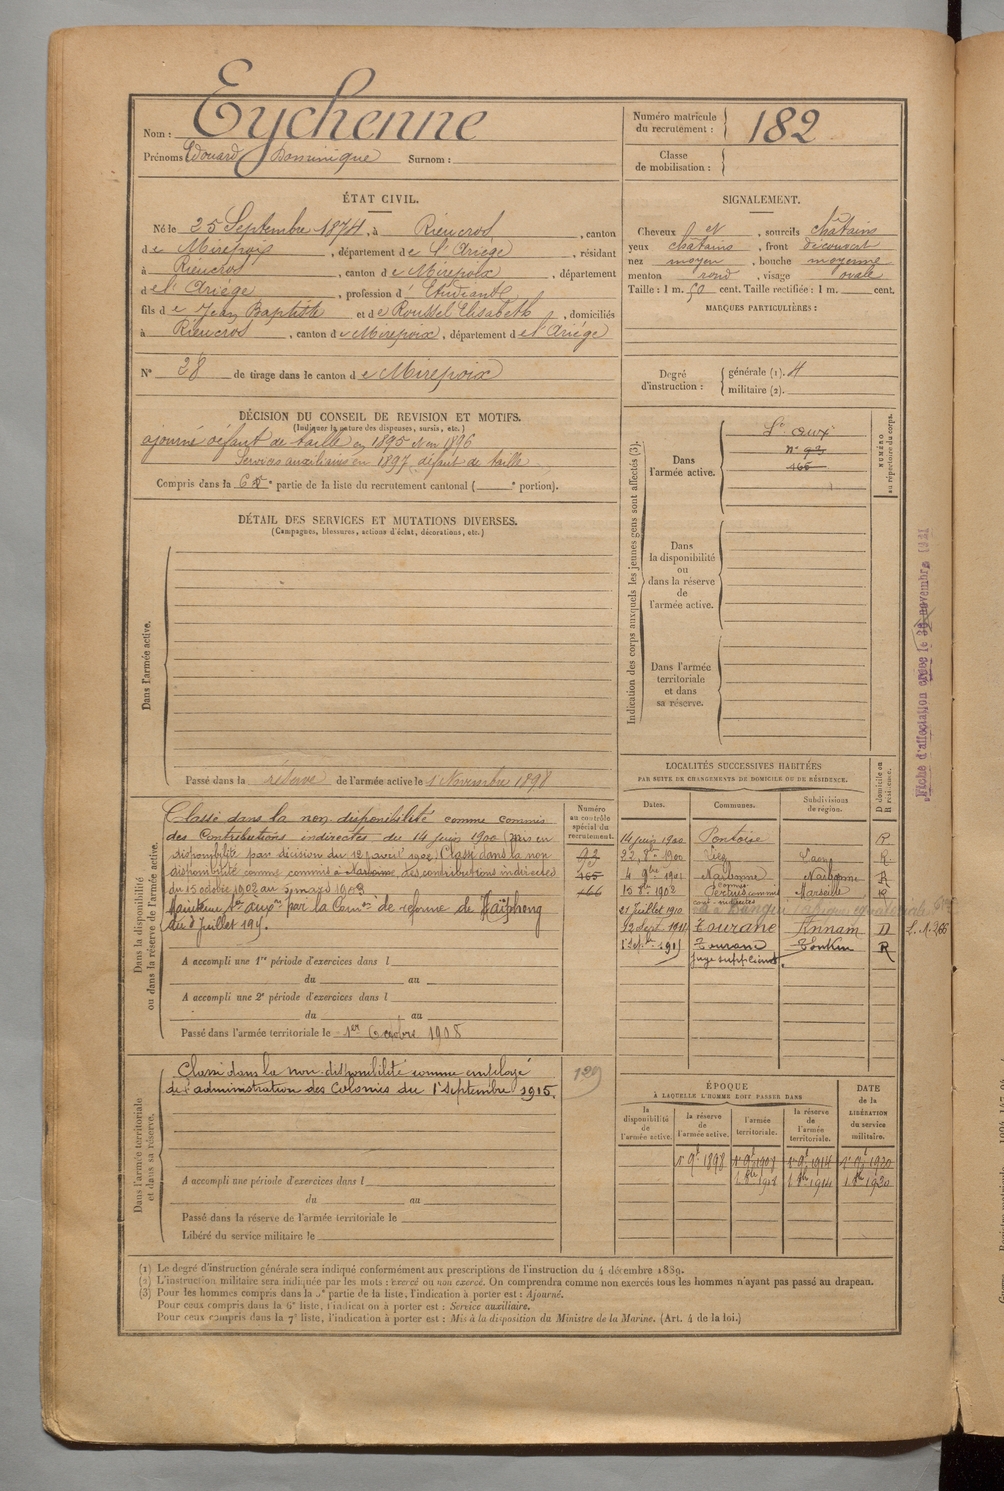 Nom : Eychenne
Prénoms Edouard Dominique Surnom :
Numéro matricule du recrutement : 182
Classe de mobilisation :
ÉTAT CIVIL.
Né le 25 Septembre 1874, à Rieucros, canton
de Mirepois, département de l'Ariège, résidant
à Rieucros, canton de Mirepoix, département
de l'Ariège, profession d' Etudiant
fils de Jean Baptiste et de Roussel Elisabeth, domiciliés
à Rieucros, canton de Mirepoix, département de l'Ariège
N° 28 de tirage dans le canton de Mirepoix
SIGNALEMENT.
Cheveux et, sourcils châtains
yeux chatains, front découvert
nez moyen, bouche moyenne
menton rond, visage ovale
Taille : 1 m. 50 cent. Taille rectifiée : 1 m. cent.
MARQUES PARTICULIÈRES :
Degré d'instruction : générale (1). 4
militaire (2).
DÉCISION DU CONSEIL DE REVISION ET MOTIFS.
(Indiquer la nature des dispenses, sursis, etc.)
ajourné défaut de taille en 1895 et en 1896
Services auxiliaires en 1897 défaut de taille
Compris dans la 6e partie de la liste du recrutement cantonal ( e portion).
DÉTAIL DES SERVICES ET MUTATIONS DIVERSES.
(Campagnes, blessures, actions d'éclat, décorations, etc.)
Dans l'armée active.
Passé dans la réserve de l'armée active le 1 Novembre 1898
Indication des corps auxquels les jeunes gens sont affectés (3).
NUMÉRO au répertoire du corps.
Dans l'armée active.
Sce auxe
n° 93
165
Dans la disponibilité ou dans la réserve de l'armée active.
Dans l'armée territoriale et dans sa réserve.
Fiche d'affectation créée le 30 novembre 1921
Dans la disponibilité ou dans la réserve de l'armée active.
Classé dans la non disponibilité comme commis
des Contributions indirectes du 14 juin 1900 (Mis en
disponibilité par décision du 12 avril 1902. Classé dans la non
disponibilité comme commis à Narbonne des contributions indirectes
du 15 octobre 1902 au 5 mars 1903
Maintenu Sce auxre par la Comon de réforme de Haïphong
Numéro au contrôle spécial du recrutement.
93
165
166
A accompli une 1re période d'exercices dans l
du au
A accompli une 2e période d'exercices dans l
du au
Passé dans l'armée territoriale le 1er Octobre 1908
LOCALITÉS SUCCESSIVES HABITÉES
PAR SUITE DE CHANGEMENTS DE DOMICILE OU DE RÉSIDENCE.
Dates. Communes. Subdivisions de région. D domicile ou R résidence.
14 juin 1900 Pontoise R
22 8bre 1900 Laon R
4 9bre 1901 Narbonne Narbonne R
15 8bre 1902 Marseille R
21 Juillet 1910
12 Sept. 1911 Tourane Annam D
Tourane Tonkin R
Juge suppléant
Dans l'armée territoriale et dans sa réserve.
Classé dans la non-disponibilité comme employé
de l'administration des Colonies du 1er septembre 1915.
A accompli une période d'exercices dans l
du au
Passé dans la réserve de l'armée territoriale le
Libéré du service militaire le
ÉPOQUE
À LAQUELLE L'HOMME DOIT PASSER DANS
la disponibilité de l'armée active.
la réserve de l'armée active.
l'armée territoriale.
la réserve de l'armée territoriale.
DATE de la LIBÉRATION du service militaire.
1er 9bre 1898 1er 9bre 1908 1er 9bre 1914 1er 9bre 1920
1 8bre 1908 1 8bre 1914 1 8bre 1920
(1) Le degré d'instruction générale sera indiqué conformément aux prescriptions de l'instruction du 4 décembre 1889.
(2) L'instruction militaire sera indiquée par les mots : exercé ou non exercé. On comprendra comme non exercés tous les hommes n'ayant pas passé au drapeau.
(3) Pour les hommes compris dans la 5e partie de la liste, l'indication à porter est : Ajourné.
Pour ceux compris dans la 6e liste, l'indication à porter est : Service auxiliaire.
Pour ceux compris dans la 7e liste, l'indication à porter est : Mis à la disposition du Ministre de la Marine. (Art. 4 de la loi.)